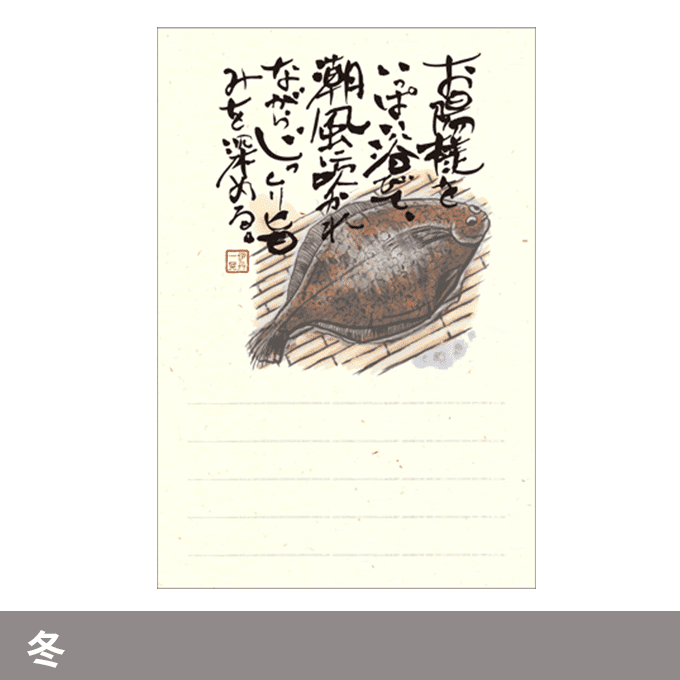 お陽様を
いっぱい浴びて、
潮風に吹かれ
ながらじっくりと旨
みを深める。
冬